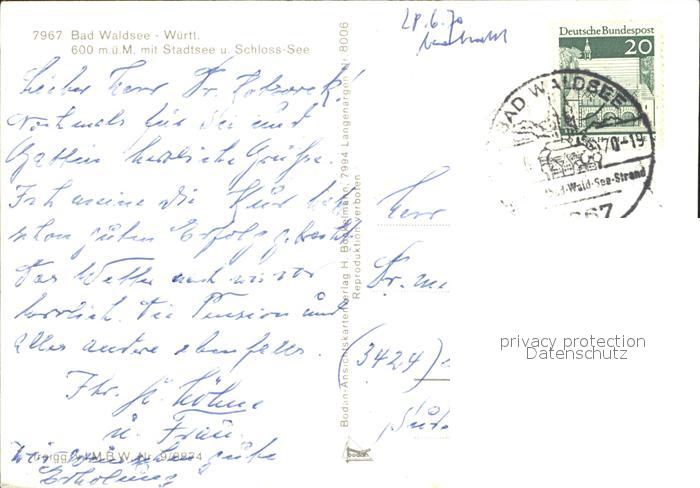 7967 Bad Waldsee - Württ.
600 m.ü.M. mit Stadtsee u. Schloss-See
28.6.70
Deutsche Bundespost
20
BAD WALDSEE
70-19
Bad-Wald-See-Strand
Lieber Herr Dr.
nochmals für Sie und
Gattin herzliche Grüsse.
Ich meine die Kur hat
schon guten Erfolg gebracht
Das Wetter nach wie vor
herrlich. Die Pension und
alles andere ebenfalls.
Ihr
u. Frau.
Wir wünschen gute
Erholung
Freigg. v. I.M.B.W. Nr. 9/8834
Bodan-Ansichtskartenverlag H. Bockelmann, 7994 Langenargen Nr 8006
Reproduktion verboten
bodan
Herr
Dr. me
(3424)
privacy protection
Datenschutz